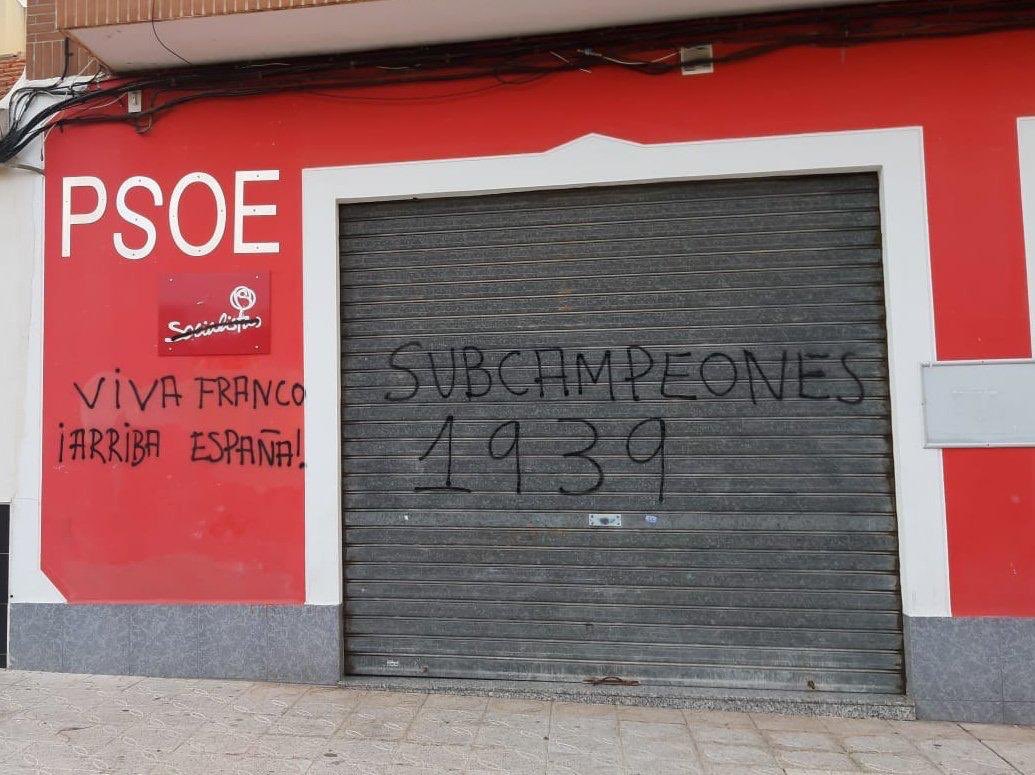 PSOE
Socialistas
VIVA FRANCO
¡ARRIBA ESPAÑA!
SUBCAMPEONES
1939